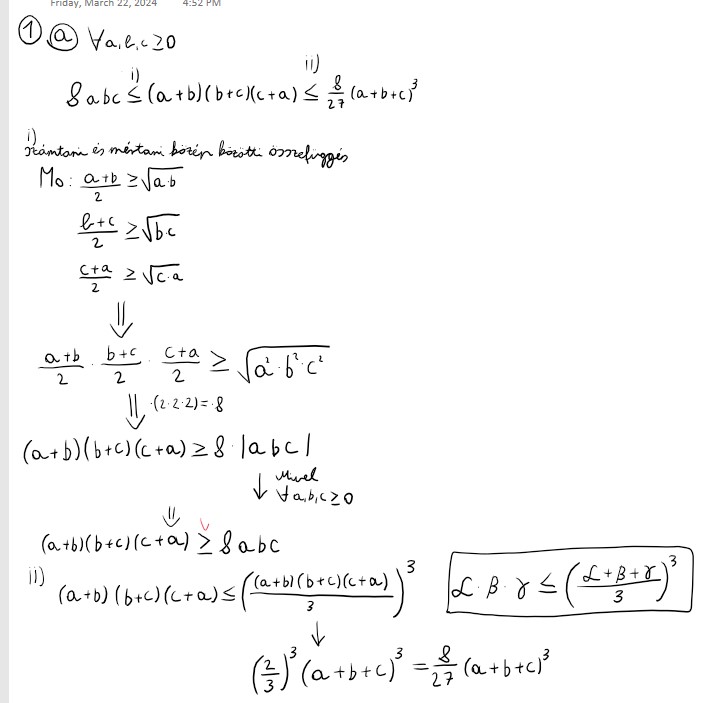 Friday, March 22, 2024 4:52 PM
① ⓐ ∀a,b,c≥0
8abc ≤ⁱ⁾ (a+b)(b+c)(c+a) ≤ⁱⁱ⁾ 8/27 (a+b+c)³
i)
számtani és mértani közép közötti összefüggés
Mo: (a+b)/2 ≥ √(a·b)
(b+c)/2 ≥ √(b·c)
(c+a)/2 ≥ √(c·a)
⇓
(a+b)/2 · (b+c)/2 · (c+a)/2 ≥ √(a²·b²·c²)
⇓ ·(2·2·2)=·8
(a+b)(b+c)(c+a) ≥ 8·|abc|
↓ Mivel
∀a,b,c≥0
⇓
(a+b)(b+c)(c+a) ≥ 8abc
ii) (a+b)(b+c)(c+a) ≤ (((a+b)(b+c)(c+a))/3)³
α·β·γ ≤ ((α+β+γ)/3)³
↓
(2/3)³ (a+b+c)³ = 8/27 (a+b+c)³